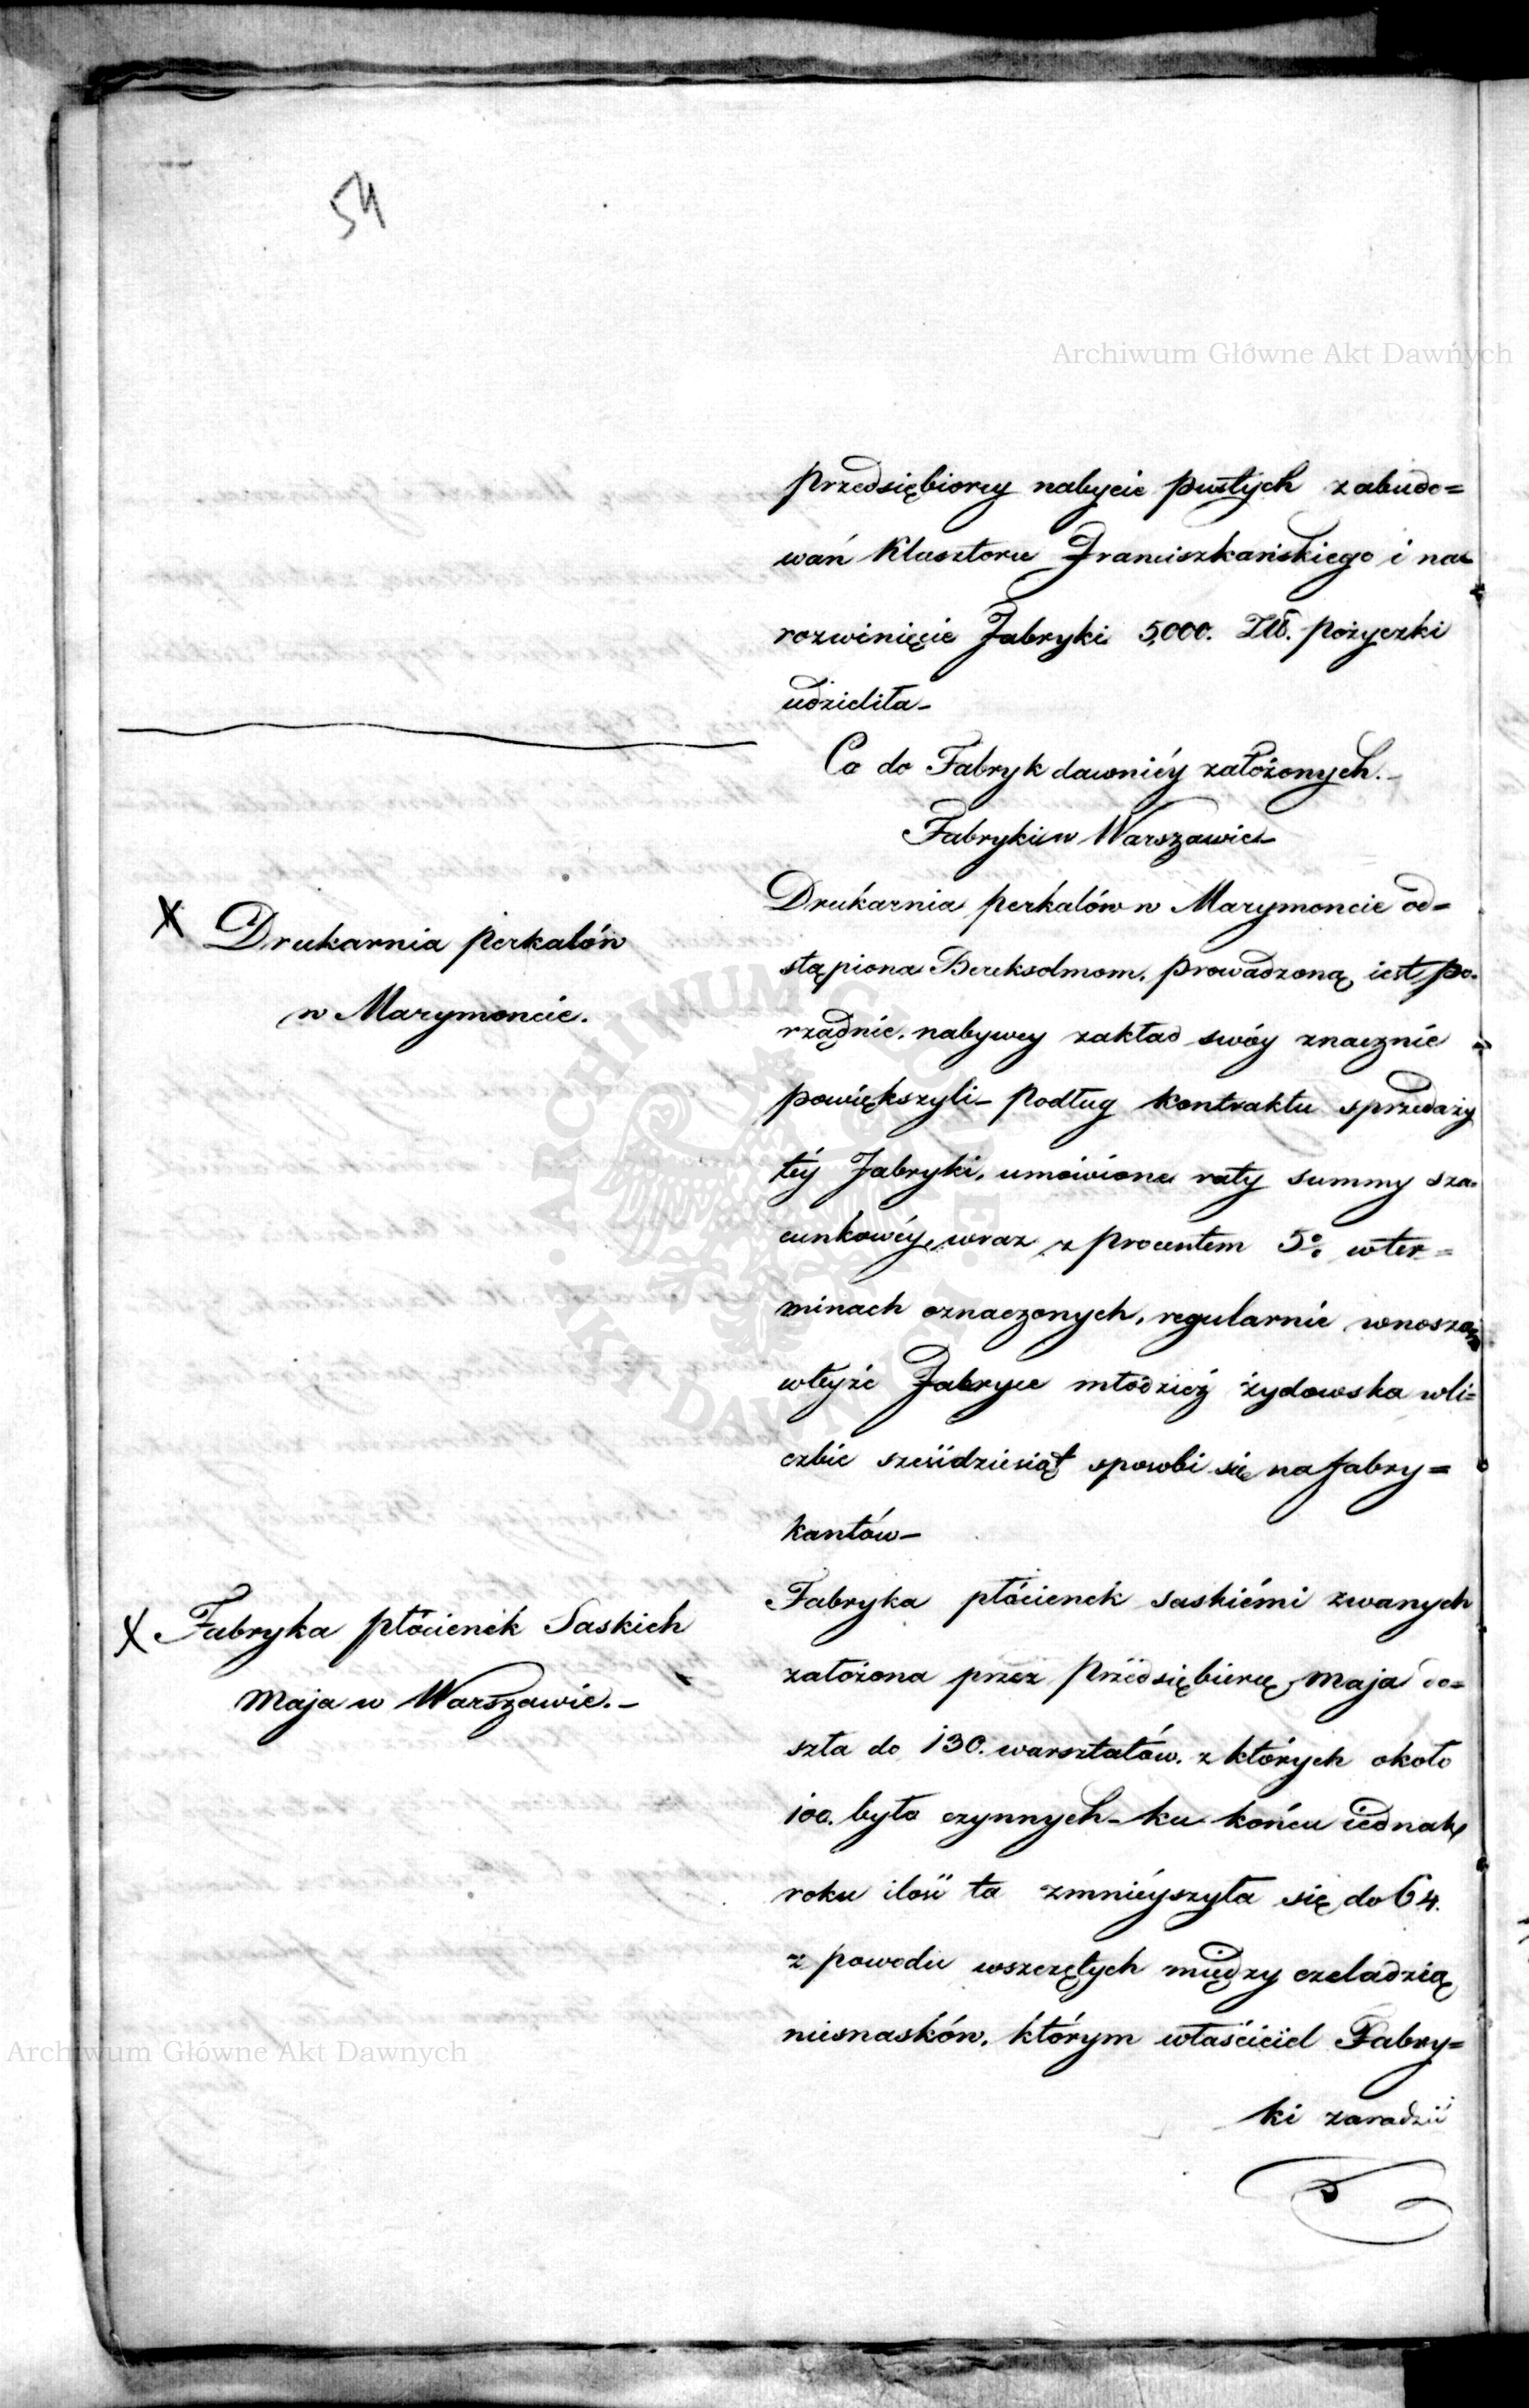 54
Archiwum Główne Akt Dawnych
przedsiębiorcy nabycie pustych zabudo=
wań Klasztoru Franciszkańskiego i na
rozwinięcie Fabryki 5,000. Złł. pożyczki
udzieliła_
Co do Fabryk dawniéy założonych._
Fabryki w Warszawie_
X Drukarnia perkalów
w Marymoncie.
Drukarnia perkalów w Marymoncie od=
stąpiona Bereksohnom, prowadzoną iest po=
rządnie, nabywcy zakład swóy znacznie
powiększyli_ podług kontraktu sprzedaży
téy Fabryki, umówione raty summy sza=
cunkowéy, wraz z procentem 5% w ter=
minach oznaczonych, regularnie wnoszą
w téyże Fabryce młódzież żydowska w li=
czbie sześćdziesiąt sposobi się na fabry=
kantów_
X Fabryka płócienek Saskich
Maja w Warszawie._
Fabryka płócienek saskiémi zwanych
założona przez Przedsiębiercę Maja do=
szła do 130. warsztatów. z których około
100. było czynnych_ ku końcu iednak
roku ilość ta zmnieyszyła się do 64.
z powodu wszczętych między czeladzią
niesnasków, którym właściciel Fabry=
ki zaradzić
Archiwum Główne Akt Dawnych
ARCHIWUM GŁÓWNE AKT DAWNYCH